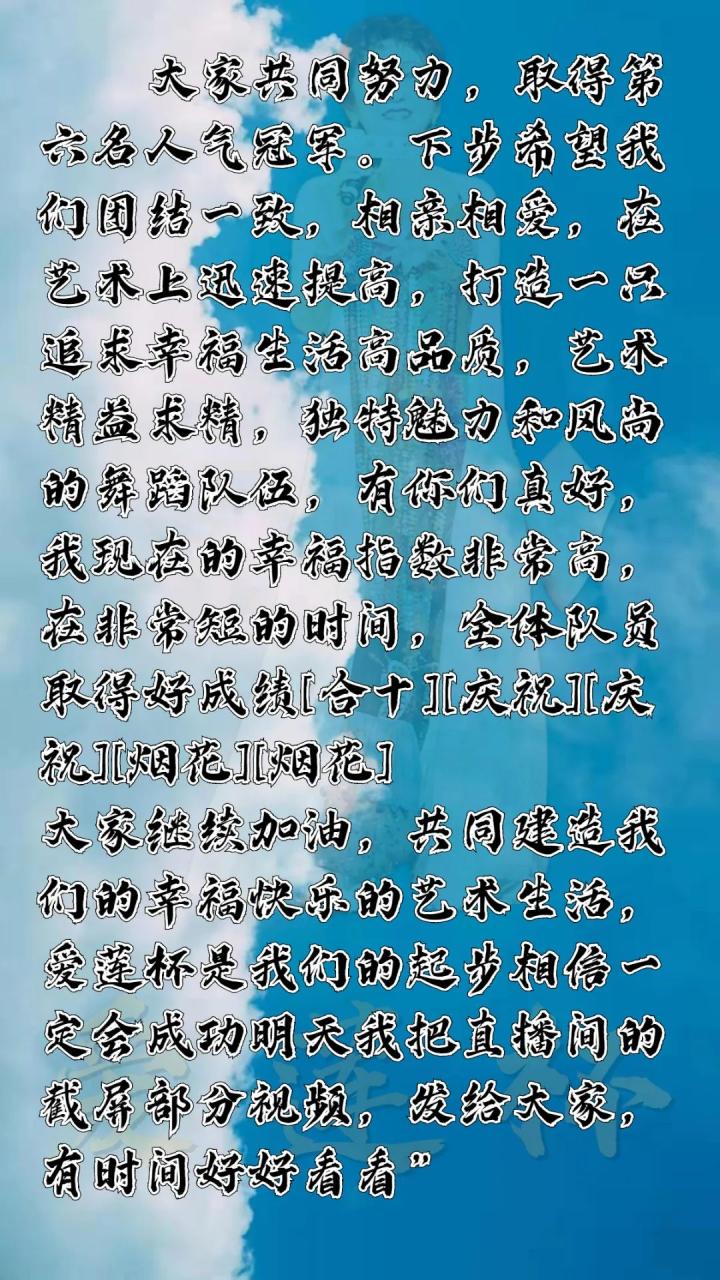 大家共同努力，取得第
六名人气冠军。下步希望我
们团结一致，相亲相爱，在
艺术上迅速提高，打造一只
追求幸福生活高品质，艺术
精益求精，独特魅力和风尚
的舞蹈队伍，有你们真好，
我现在的幸福指数非常高，
在非常短的时间，全体队员
取得好成绩[合十][庆祝][庆
祝][烟花][烟花]
大家继续加油，共同建造我
们的幸福快乐的艺术生活，
爱莲杯是我们的起步相信一
定会成功明天我把直播间的
截屏部分视频，发给大家，
有时间好好看看”
爱莲杯